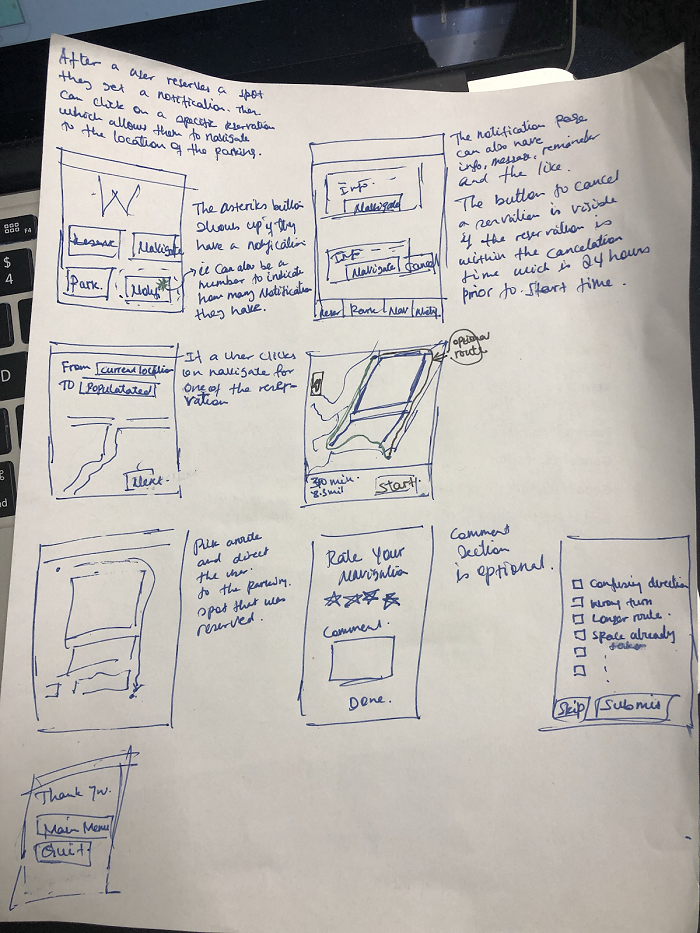 After a user reserves a spot
they get a notification. Then
can click on a specific reservation
which allows them to navigate
to the location of the parking.
W
Reserve
Navigate
Park
Notif
The asteriks button
shows up if they
have a notification
it can also be a
number to indicate
how many Notification
they have.
Info
Navigate
Info
Navigate
Cancel
Park
Nav
Notif
The notification page
can also have
info, message, remainder
and the like.
The button to cancel
a servation is viside
if the reservation is
within the cancelation
time wich is 24 hours
prior to start time.
From current location
TO Populatated
Next
If a User clicks
on navigate for
one of the reser-
vation
optional
route
min
8.5 mil
Start
Pick a route
and direct
the user
to the parking
spot that was
reserved.
Rate Your
Navigation
Comment.
Done.
Comment
Section
is optional.
Confusing direction
Wrong turn
Longer route.
Space already
taken
Skip
Submit
Thank You.
Main Menu
Quit
F4
$
4
D